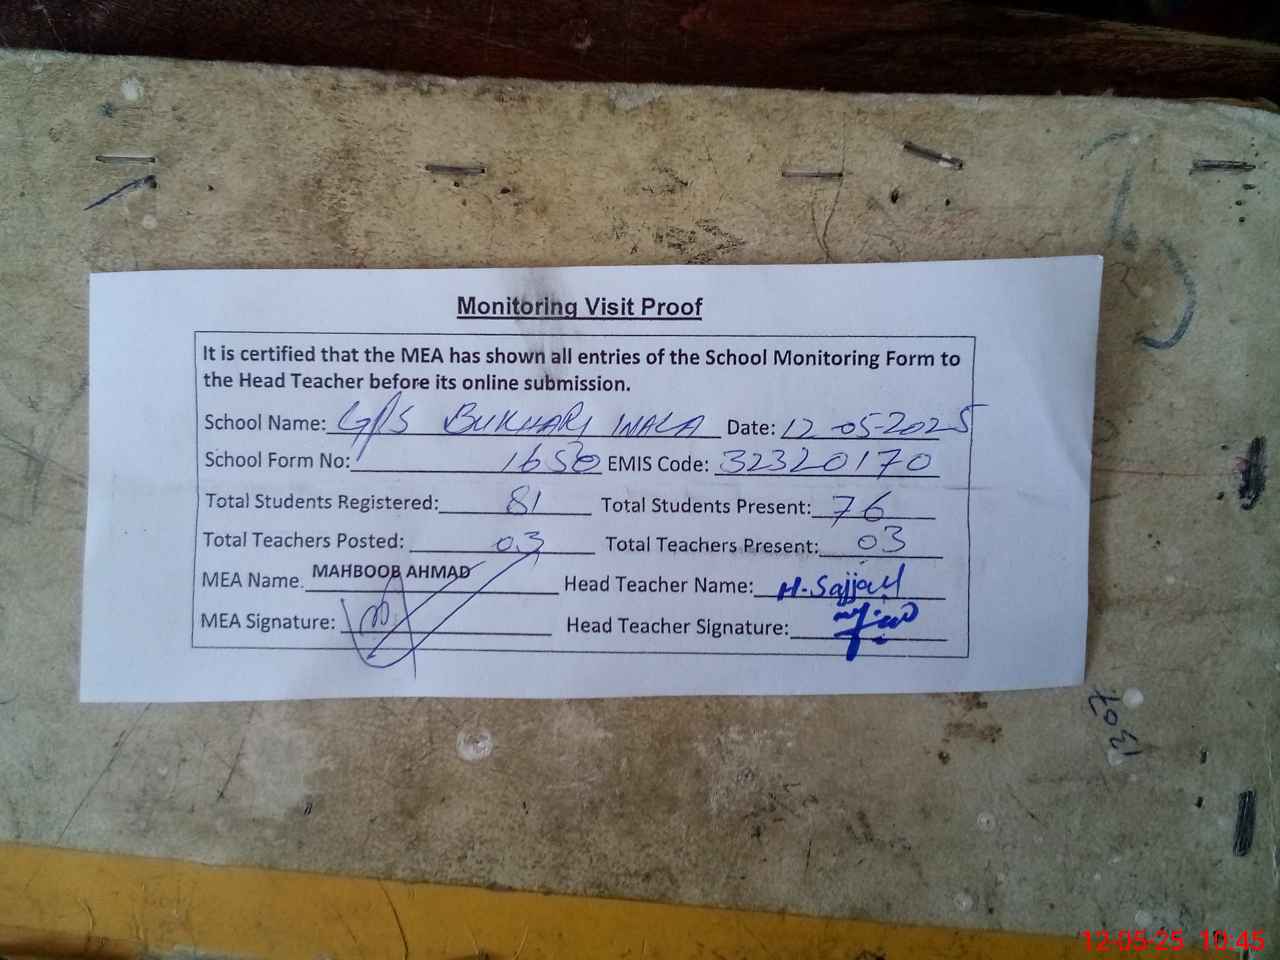 Monitoring Visit Proof
It is certified that the MEA has shown all entries of the School Monitoring Form to
the Head Teacher before its online submission.
School Name: G/P/S BUKHARI WALA Date: 12-05-2025
School Form No: 1650 EMIS Code: 32320170
Total Students Registered: 81 Total Students Present: 76
Total Teachers Posted: 03 Total Teachers Present: 03
MEA Name. MAHBOOB AHMAD Head Teacher Name: H. Sajjad
MEA Signature: Head Teacher Signature:
1307
12-05-25 10:45